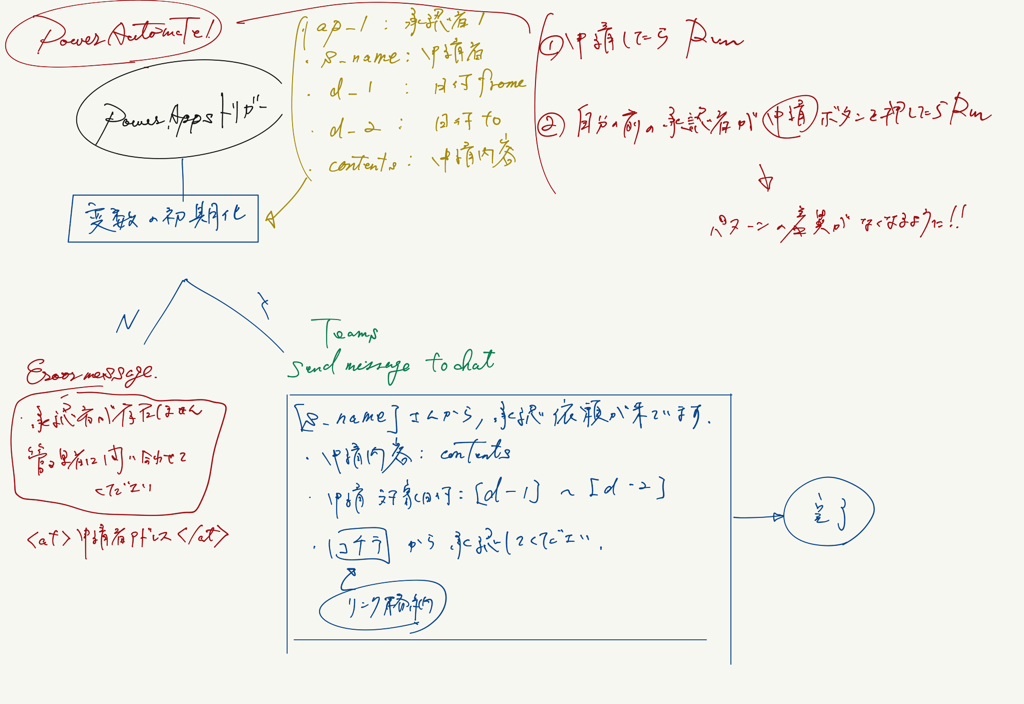 Power Automate!
Power Apps トリガー
・ap_1 : 承認者1
・s_name : 申請者
・d_1 : 日付frome
・d_2 : 日付to
・contents : 申請内容
① 申請したら Run
② 自分の前の承認者が 申請 ボタンを押したら Run
パターンの差異がなくなるように!!
変数の初期化
N
Y
Error message.
・承認者が存在しません
管理者に問い合わせて
ください
<at>申請者アドレス</at>
Teams
Send message to chat
[s_name] さんから, 承認依頼が来ています.
・申請内容 : contents
・申請対象日付 : [d-1] ~ [d-2]
・コチラ から 承認してください.
リンク格納
完了